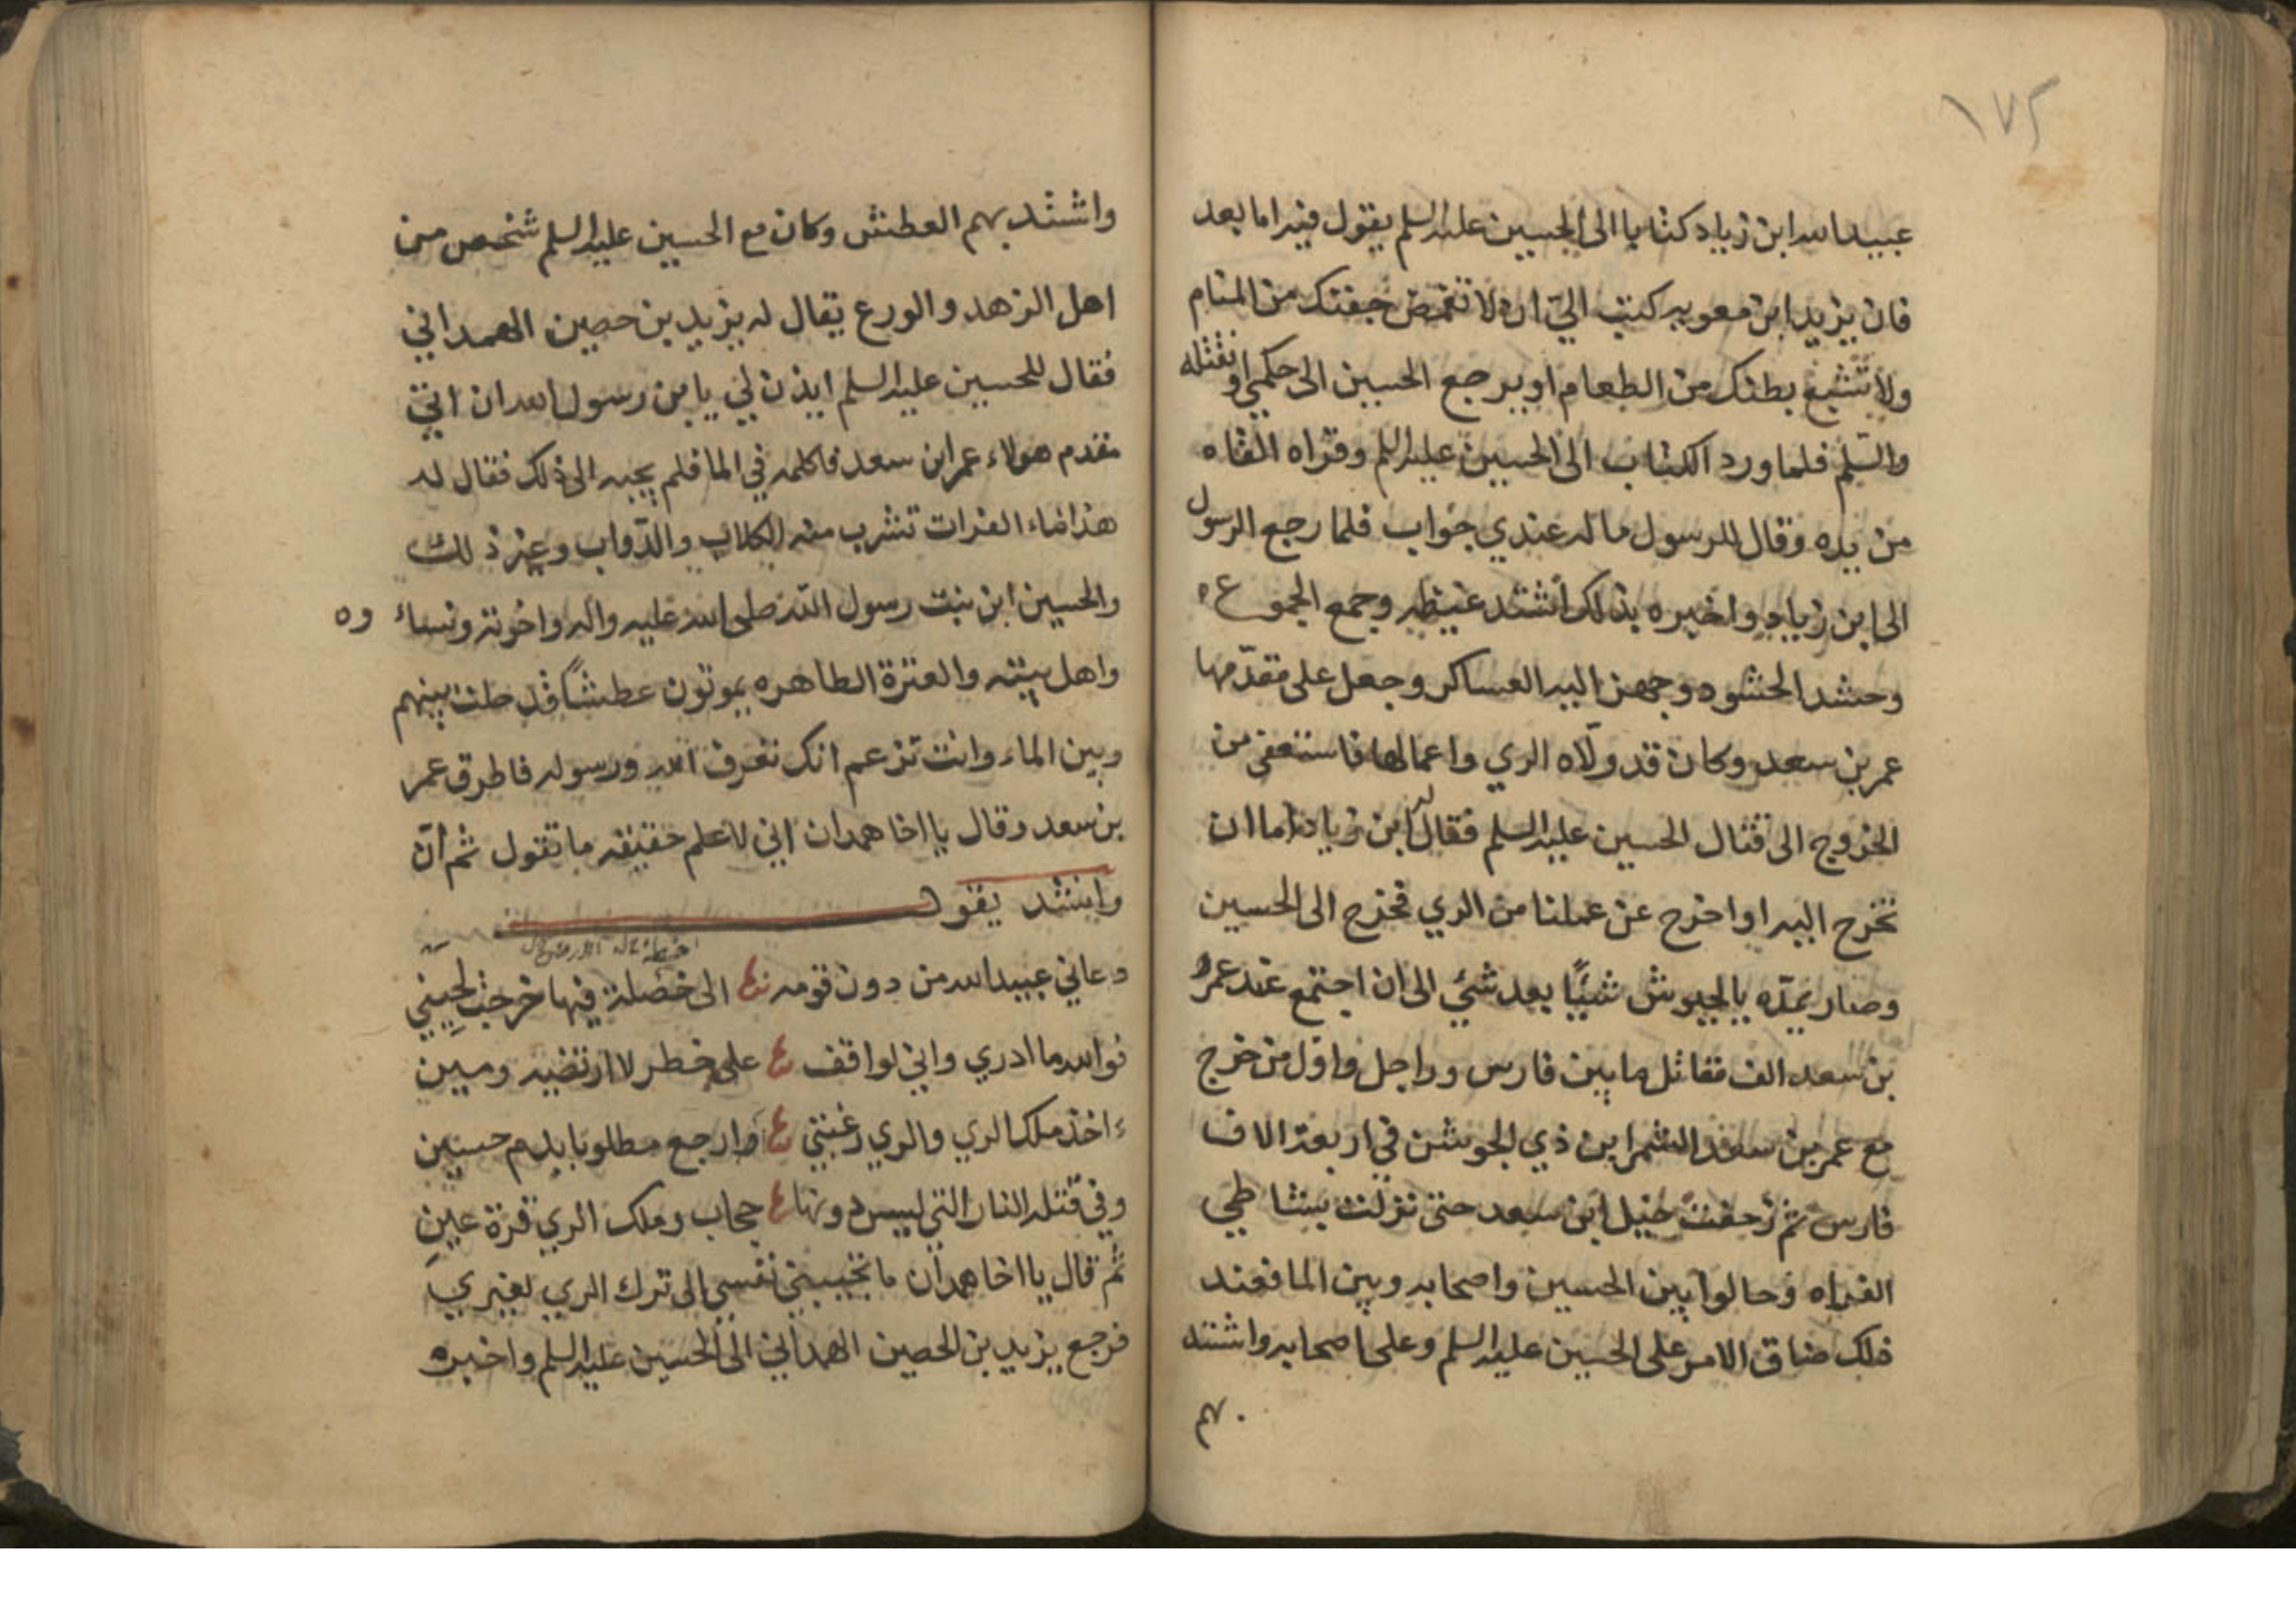 ١٧٢
عبيد الله ابن زياد كتابا الى الحسين عليه السلم يقول فيه اما بعد
فان يزيد ابن معويه كتب اليّ ان لا تغمض جفنك من المنام
ولا تشبع بطنك من الطعام او يرجع الحسين الى حكمي او تقتله
والسّلم فلما ورد الكتاب الى الحسين عليه السلم وقراه القاه
من يده وقال للرسول ما له عندي جواب فلما رجع الرسول
الى ابن زياد واخبره بذلك اشتد غيظه وجمع الجموع ه
وحشد الحشود وجهز اليه العساكر وجعل على مقدّمها
عمر بن سعد وكان قد ولّاه الري واعمالها فاستعفى من
الخروج الى قتال الحسين عليه السلم فقال له ابن زياد اما ان
تخرج اليه او اخرج عن عملنا من الري فخرج الى الحسين
وصار يمدّه بالجيوش شيئًا بعد شئي الى ان اجتمع عند عمر
بن سعد الف مقاتل ما بين فارس وراجل واول من خرج
مع عمر بن سعد الشمر ابن ذي الجوشن في اربعة الاف
فارس ثم زحفت خيل ابن سعد حتى نزلت بشاطي
الفراه وحالوا بين الحسين واصحابه وبين الما فعند
ذلك ضاق الامر على الحسين عليه السلم وعلى اصحابه واشتد
بهم
واشتد بهم العطش وكان مع الحسين عليه السلم شخص من
اهل الزهد والورع يقال له يزيد بن حصين الهمداني
فقال للحسين عليه السلم ايذن لي يا بن رسول الله ان اتي
مقدم هولاء عمر ابن سعد فاكلمه في الما فلم يجبه الى ذلك فقال له
هذا ماء الفرات تشرب منه الكلاب والدّواب وغير ذلك
والحسين ابن بنت رسول الله صلى الله عليه واله واخوته ونساءوه
واهل بيته والعترة الطاهره يموتون عطشًا قد حلت بينهم
وبين الماء وانت تزعم انك تعرف الله ورسوله فاطرق عمر
بن سعد وقال يا اخا همدان اني لاعلم حقيقه ما تقول ثم انّ
وانشد يقول
دعاني عبيد الله من دون قومه الى خصلة فيها خرجت لحيني
فوالله ما ادري واني لواقف على خطر لا ارتضيه ومين
ءاخذ ملك الري والري رغبتي او ارجع مطلوبا بدم حسين
وفي قتله النار التي ليس دونها حجاب وملك الري قرة عين
ثم قال يا اخا همدان ما تجيبني نفسي الى ترك الري لغيري
فرجع يزيد بن الحصين الهمداني الى الحسين عليه السلم واخبره